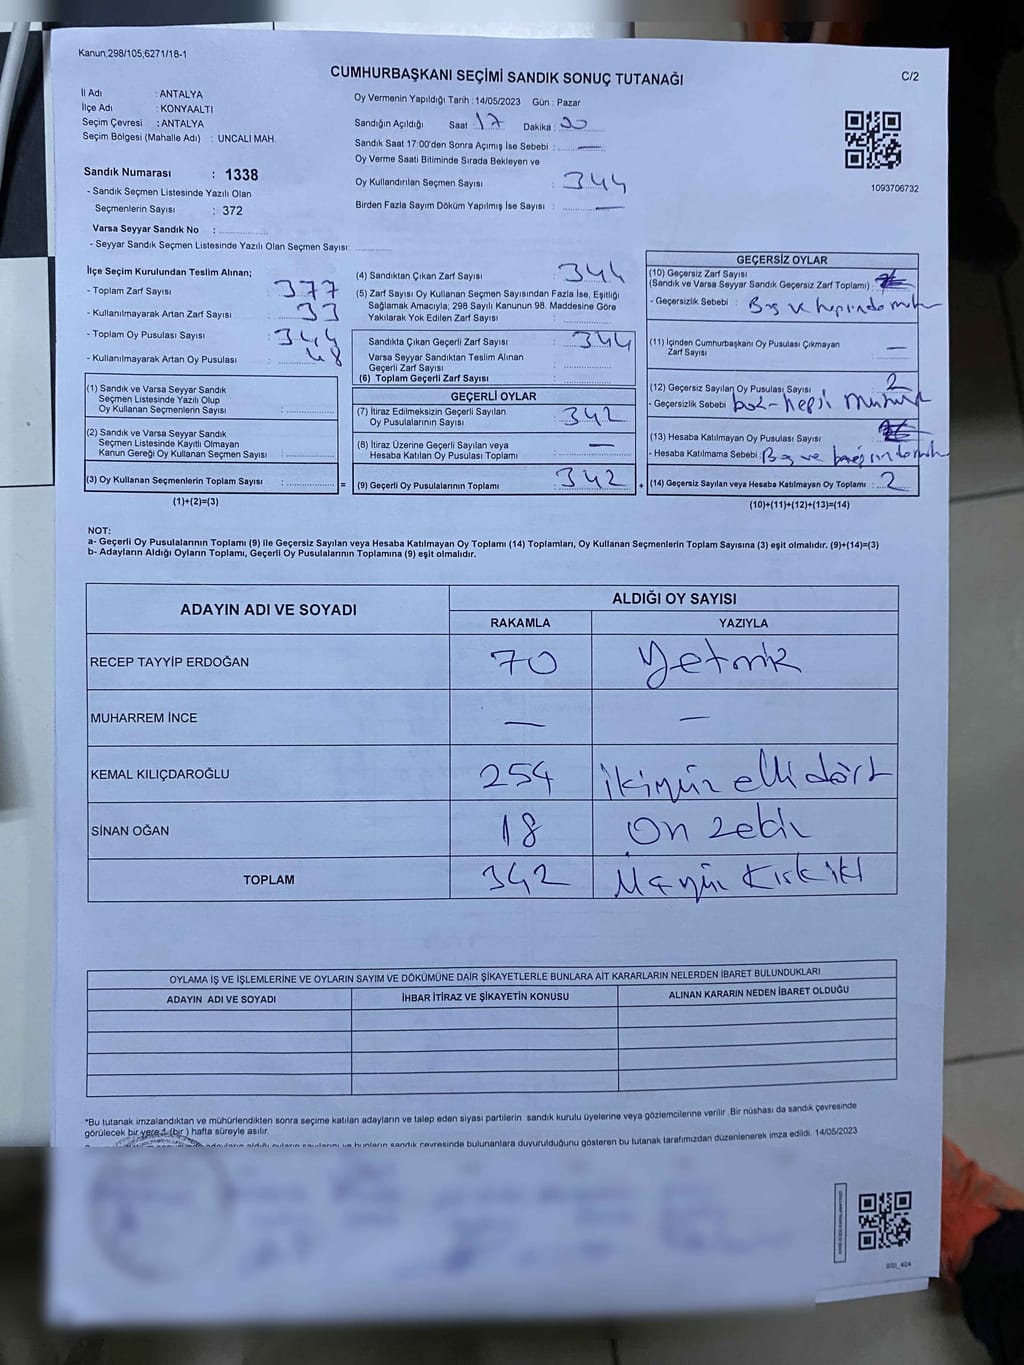 Kanun,298/105;6271/18-1
CUMHURBAŞKANI SEÇİMİ SANDIK SONUÇ TUTANAĞI
C/2
İl Adı : ANTALYA
İlçe Adı : KONYAALTI
Seçim Çevresi : ANTALYA
Seçim Bölgesi (Mahalle Adı) : UNCALI MAH.
Oy Vermenin Yapıldığı Tarih : 14/05/2023 Gün : Pazar
Sandığın Açıldığı Saat : 17 Dakika : 20
Sandık Saat 17:00'den Sonra Açımış İse Sebebi : —
Oy Verme Saati Bitiminde Sırada Bekleyen ve
Oy Kullandırılan Seçmen Sayısı : 344
Birden Fazla Sayım Döküm Yapılmış İse Sayısı : —
1093706732
Sandık Numarası : 1338
- Sandık Seçmen Listesinde Yazılı Olan
Seçmenlerin Sayısı : 372
Varsa Seyyar Sandık No :
- Seyyar Sandık Seçmen Listesinde Yazılı Olan Seçmen Sayısı:
İlçe Seçim Kurulundan Teslim Alınan;
- Toplam Zarf Sayısı : 377
- Kullanılmayarak Artan Zarf Sayısı : 33
- Toplam Oy Pusulası Sayısı : 344
- Kullanılmayarak Artan Oy Pusulası : 48
(1) Sandık ve Varsa Seyyar Sandık
Seçmen Listesinde Yazılı Olup
Oy Kullanan Seçmenlerin Sayısı :
(2) Sandık ve Varsa Seyyar Sandık
Seçmen Listesinde Kayıtlı Olmayan
Kanun Gereği Oy Kullanan Seçmen Sayısı :
(3) Oy Kullanan Seçmenlerin Toplam Sayısı : =
(1)+(2)=(3)
(4) Sandıktan Çıkan Zarf Sayısı : 344
(5) Zarf Sayısı Oy Kullanan Seçmen Sayısından Fazla İse, Eşitliği
Sağlamak Amacıyla; 298 Sayılı Kanunun 98. Maddesine Göre
Yakılarak Yok Edilen Zarf Sayısı :
Sandıkta Çıkan Geçerli Zarf Sayısı : 344
Varsa Seyyar Sandıktan Teslim Alınan
Geçerli Zarf Sayısı :
(6) Toplam Geçerli Zarf Sayısı :
GEÇERLİ OYLAR
(7) İtiraz Edilmeksizin Geçerli Sayılan
Oy Pusulalarının Sayısı : 342
(8) İtiraz Üzerine Geçerli Sayılan veya
Hesaba Katılan Oy Pusulası Toplamı : —
(9) Geçerli Oy Pusulalarının Toplamı : 342 +
GEÇERSİZ OYLAR
(10) Geçersiz Zarf Sayısı
(Sandık ve Varsa Seyyar Sandık Geçersiz Zarf Toplamı) :
- Geçersizlik Sebebi : Boş ve
(11) İçinden Cumhurbaşkanı Oy Pusulası Çıkmayan
Zarf Sayısı : —
(12) Geçersiz Sayılan Oy Pusulası Sayısı : 2
- Geçersizlik Sebebi :
(13) Hesaba Katılmayan Oy Pusulası Sayısı :
- Hesaba Katılmama Sebebi : Boş ve
(14) Geçersiz Sayılan veya Hesaba Katılmayan Oy Toplamı : 2
(10)+(11)+(12)+(13)=(14)
NOT:
a- Geçerli Oy Pusulalarının Toplamı (9) ile Geçersiz Sayılan veya Hesaba Katılmayan Oy Toplamı (14) Toplamları, Oy Kullanan Seçmenlerin Toplam Sayısına (3) eşit olmalıdır. (9)+(14)=(3)
b- Adayların Aldığı Oyların Toplamı, Geçerli Oy Pusulalarının Toplamına (9) eşit olmalıdır.
ADAYIN ADI VE SOYADI ALDIĞI OY SAYISI
RAKAMLA YAZIYLA
RECEP TAYYİP ERDOĞAN 70 Yetmiş
MUHARREM İNCE — —
KEMAL KILIÇDAROĞLU 254 ikiyüz elli dört
SİNAN OĞAN 18 On sekiz
TOPLAM 342 Üçyüz Kırk iki
OYLAMA İŞ VE İŞLEMLERİNE VE OYLARIN SAYIM VE DÖKÜMÜNE DAİR ŞİKAYETLERLE BUNLARA AİT KARARLARIN NELERDEN İBARET BULUNDUKLARI
ADAYIN ADI VE SOYADI İHBAR İTİRAZ VE ŞİKAYETİN KONUSU ALINAN KARARIN NEDEN İBARET OLDUĞU
*Bu tutanak imzalandıktan ve mühürlendikten sonra seçime katılan adayların ve talep eden siyasi partilerin sandık kurulu üyelerine veya gözlemcilerine verilir .Bir nüshası da sandık çevresinde
görülecek bir yere 1 (bir ) hafta süreyle asılır.
adayların aldığı oyların sayılarını ve bunların sandık çevresinde bulunanlara duyurulduğunu gösteren bu tutanak tarafımızdan düzenlenerek imza edildi. 14/05/2023
SSI_404